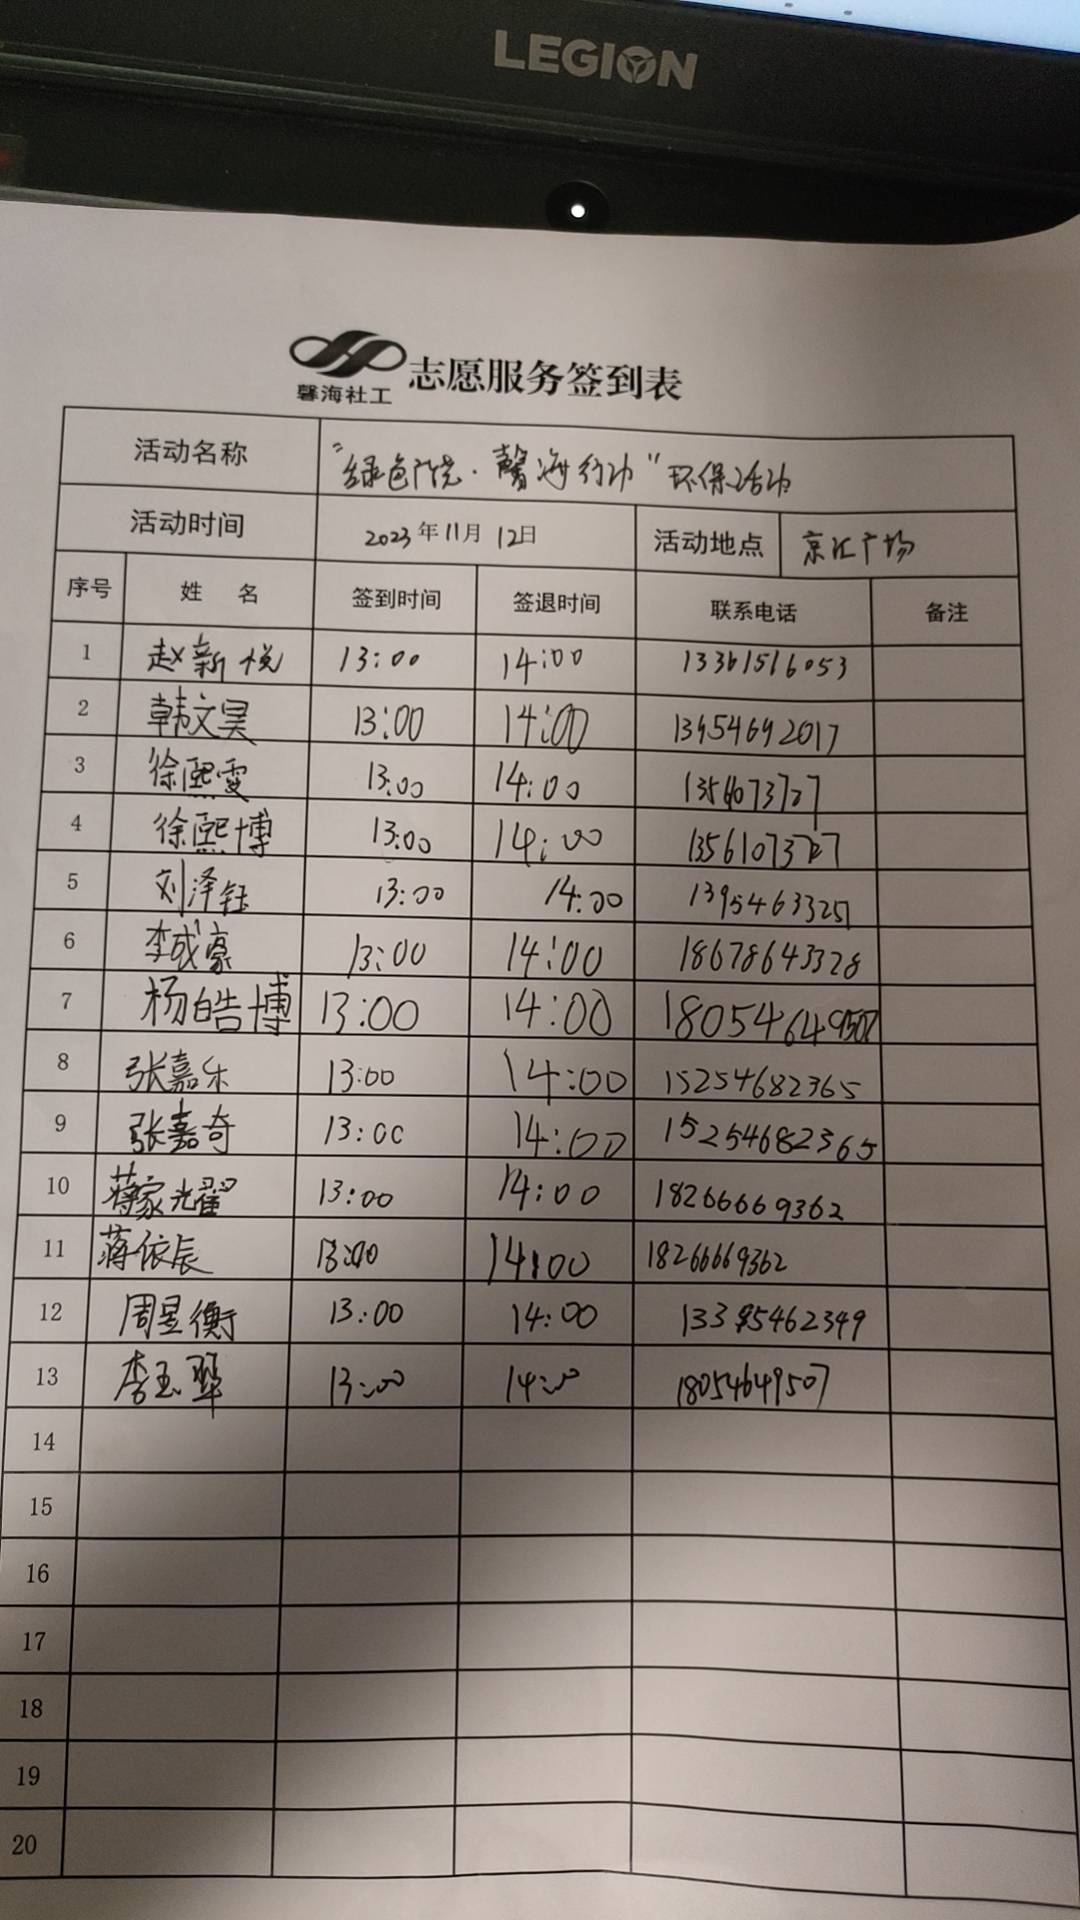 LEGION
馨海社工 志愿服务签到表
活动名称 "绿色广饶·馨海行动"环保活动
活动时间 2023年11月12日 活动地点 京汇广场
序号 姓 名 签到时间 签退时间 联系电话 备注
1 赵新悦 13:00 14:00 13361516053
2 韩文昊 13:00 14:00 13954692017
3 徐熙雯 13:00 14:00
4 徐熙博 13:00 14:00
5 刘泽钰 13:00 14:00 13954633251
6 李成豪 13:00 14:00 18678643328
7 杨皓博 13:00 14:00 18054649507
8 张嘉乐 13:00 14:00 15254682365
9 张嘉奇 13:00 14:00 15254682365
10 蒋家耀 13:00 14:00 18266669362
11 蒋依辰 13:00 14:00 18266669362
12 周昱衡 13:00 14:00 13395462349
13 李玉翠 13:00 14:00 18054649507
14
15
16
17
18
19
20